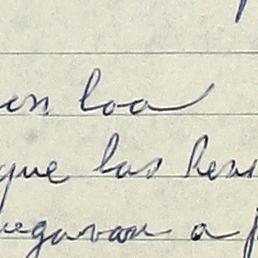 en loa
que las hen
egavan a p